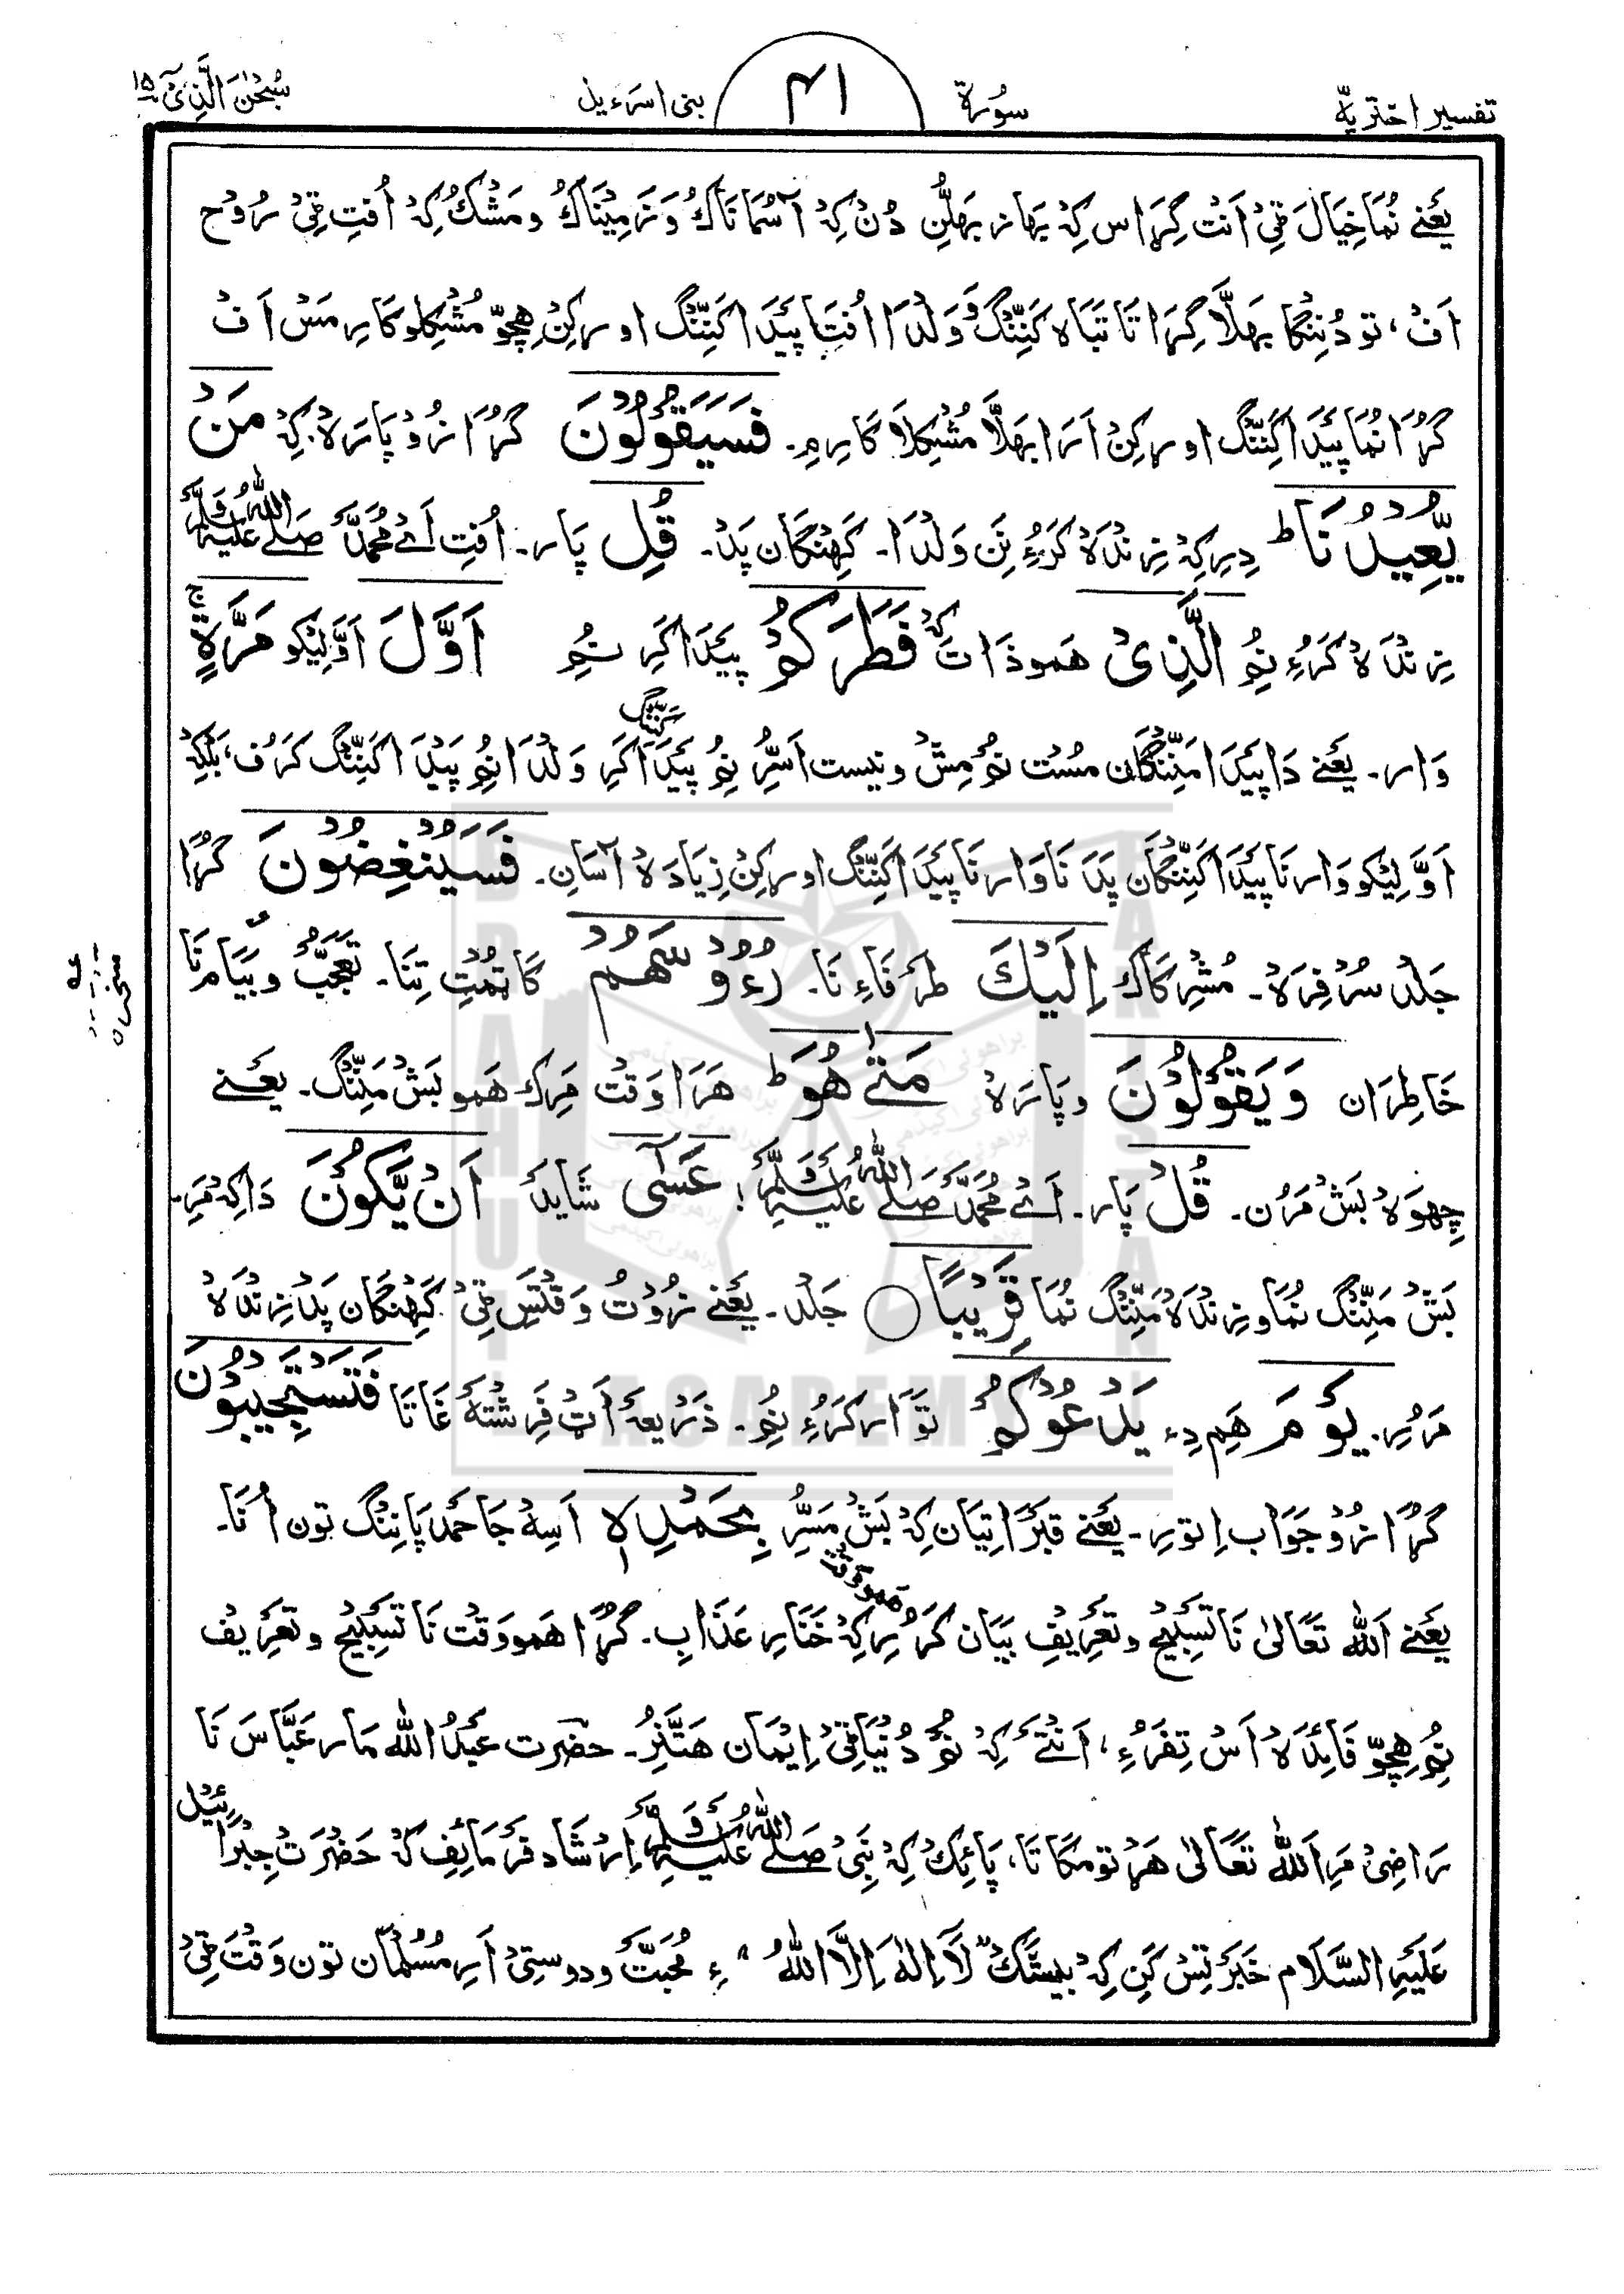 تفسیر اختریہ
سُورۃ
۴۱
بنی اسرءیل
سُبْحٰنَ الَّذِیْٓ ۱۵
یَعْنے نُمَا خِیَالَ قِیْ اَنْتْ گِرَاس کِہْ بَھاز بَھلُّنِ دُنْ کِہْ آسْمَاتَاکْ وَ زَمِیْنَاکْ و مَشْکْ کِہْ اُفتِ قِیْ رُوْح
اَفْ، تو دُنِنْگا بھلَّا گِرَاتَا تَبَاہ کَنِنَّگْ وَ وَلْدَا اُفتَا پَیْدَا کَنِنَّگ او رکِنْ ھِچّو مُشْکِلو کَارِمَسْ اَفْ
گُرَا نُمَا پَیْدَا کَنِنَّگ او رکِنْ اَرَا بھَلَّا مُشْکِلَا کَارِمِ۔ فَسَیَقُوْلُوْنَ گُرَا زُوْ پَارَہ کِہْ مَنْ
یُّعِیْدُنَا ط دِیرِ کِہْ زِنْدَہ کَرُءِ نَن وَلْدَا۔ کَہِنگان پَدْ۔ قُلِ پَار۔ اُفتِ اَےْ مُحَمَّدْ صَلَّے اللّٰہُ عَلَیْہِ وَسَلَّمَ
زِنْدَہ کَرُءِ نُمِ الَّذِیْ ھَمو ذَات کِہْ فَطَرَکُمْ پَیْدَا کَرِ نُمِ اَوَّلَ اَوَّلِیْکو مَرَّۃٍ ج
وَار۔ یَعْنے دَا پَیْدَا مَنِنَّگان مُسْت نُمْ مِشْ و نیست اَسُّرِ نُمِ پَیْدَا کَرِ وَلْدَا نُمِ پَیْدَا کَنِنَّگ کَرُف، بَلْکِہْ
اَوَّلِیْکو وَار نَا پَیْدَا کَنِنَّگان پَدَ نَا وَار نَا پَیْدَا کَنِنَّگ او رکِنْ زِیَادَہْ آسَانِ۔ فَسَیُنْغِضُوْنَ گُرَا
جَلْد سُرْفِرَہْ۔ مُشْرِکَاک اِلَیْکَ طَرَفَاءِ نَا۔ رُءُوْسَھُمْ کَاتُمْتِ تِنَا۔ تَعَجُّبْ و بَیَامْ نَا
خَاطِرَان وَیَقُوْلُوْنَ و پَارَہْ مَتٰے ھُوَ ط ھَرَا وَقْت مَرِک ھَمو بَشْ مَنِنَّگ۔ یَعْنے
چِھوَہْ بَشْ مَرُن۔ قُلْ پَار۔ اَےْ مُحَمَّدْ صَلَّے اللّٰہُ عَلَیْہِ وَسَلَّمَ! عَسٰٓی شَایَدْ اَنْ یَّکُوْنَ دَا کِہْ مَرِ۔
بَشْ مَنِنَّگ نُمَا و زِنْدَہْ مَنِنَّگ نُمَا قَرِیْبًا ○ جَلْد۔ یَعْنے زُوْتُ وَقْتَس قِیْ کَہِنگان پَدْ زِنْدَہْ
مَرُرِ۔ یَوْمَ ھَم دِءِ یَدْعُوْکُمْ تَوَار کَرُءِ نُمِ۔ ذَرِیْعَہْ اَتْ فَرِشْتَہْ غَاتَا فَتَسْتَجِیْبُوْنَ
گُرَا زُوْ جَوَاب اِتورِ۔ یَعْنے قَبْرَاتِیَان کِہْ بَشْ مَسُّرِ بِحَمْدِہٖ اَسِہْ جَا حَمْد پَانِنَّگ تون اُنَا۔
یَعْنے اَللّٰہ تَعَالیٰ نَا تَسْبِیْحِ و تَعْرِیْفِ بَیَان کَرُرِ کِہْ خَنَارِ عَذَابِ۔ گُرَا ھَمو وَقْت نَا تَسْبِیْحْ و تَعْرِیْف
نُمِ ھِچّو فَائِدَہْ اَسْ تِفَرُءِ، اَنْتَئے کِہْ نُمْ دُنْیَا قِیْ اِیْمَان ھَتَّنُرِ۔ حضرت عَبْدُ اللّٰہ مَار عَبَّاسَ نَا
رَاضِیْ مَرِ اَللّٰہ تَعَالیٰ ھَرْ تومَکَا تَا، پَائِکْ کِہْ نَبِیْ صَلَّے اللّٰہُ عَلَیْہِ وَسَلَّمَ اِرْشَاد فَرْمَائِفِ کِہْ حَضْرَتْ جِبْرَائِیْل
عَلَیْہِ السَّلَام خَبَرْ تِسْ کَنِ کِہْ بیشَّکْ "لَا اِلٰہَ اِلَّا اللّٰہُ" ءِ مُحَبَّتْ و دوستِیْ اَرِ مُسْلمَان تون وَقْتَ قِیْ